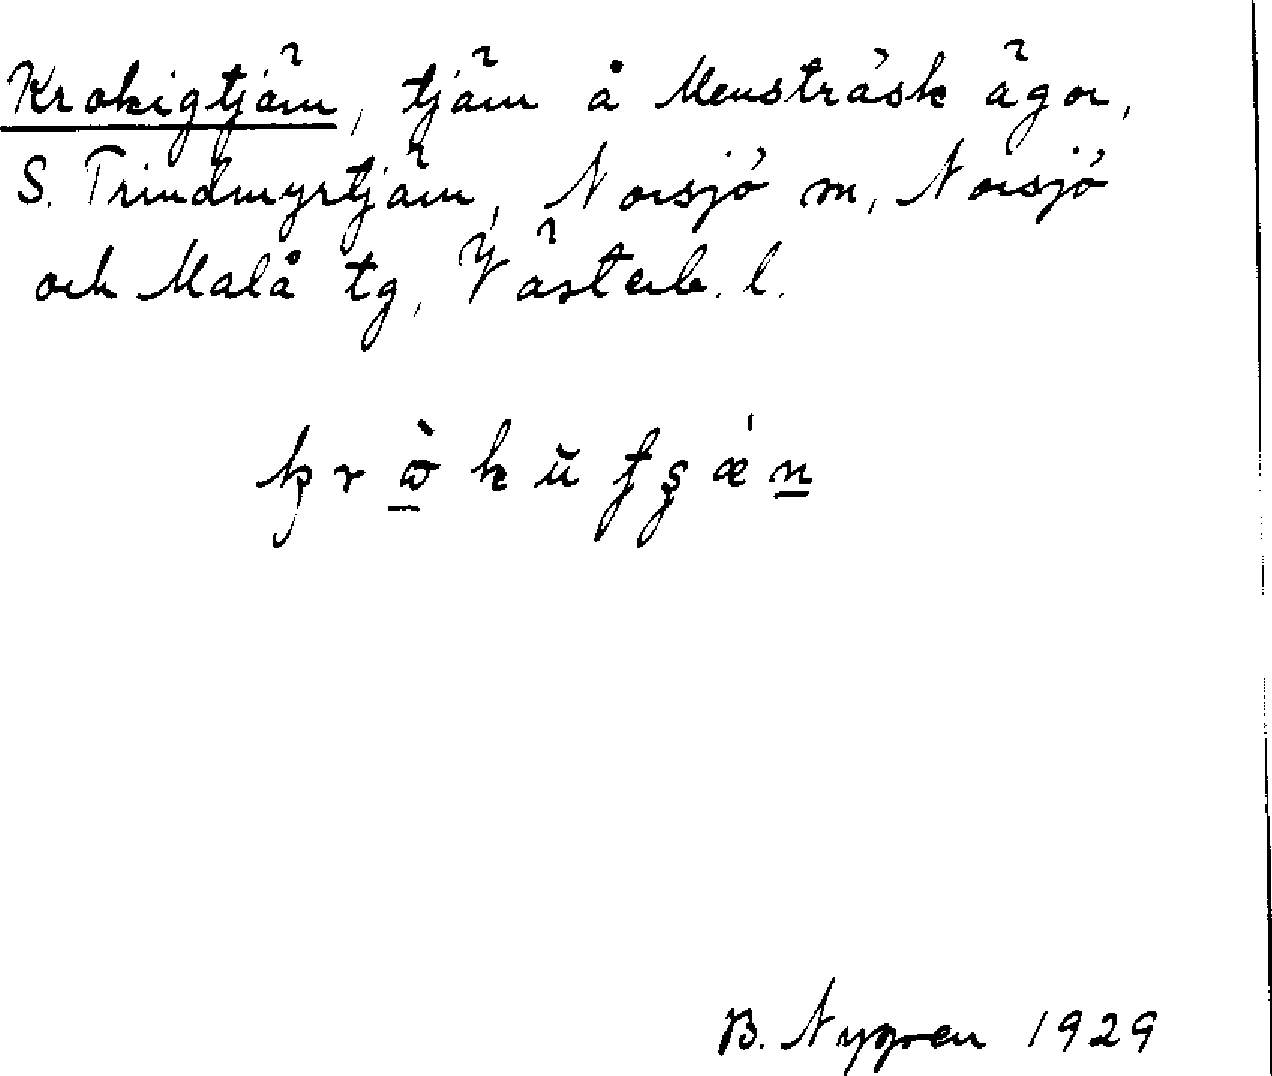 Krokigtjärn, tjärn å Mensträsk ägor,
S. Trindmyrtjärn, Norsjö sn, Norsjö
och Malå tg, Västerb. l.
B. Nygren 1929